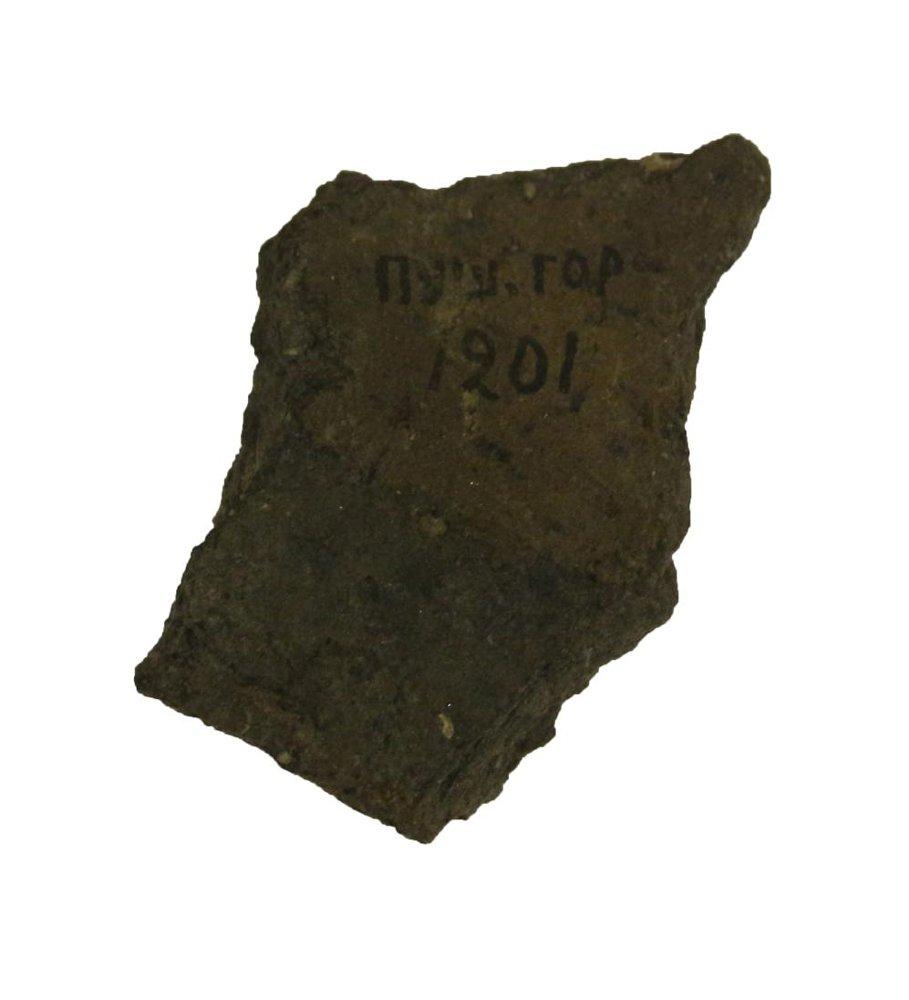 Пуш. гор
1201